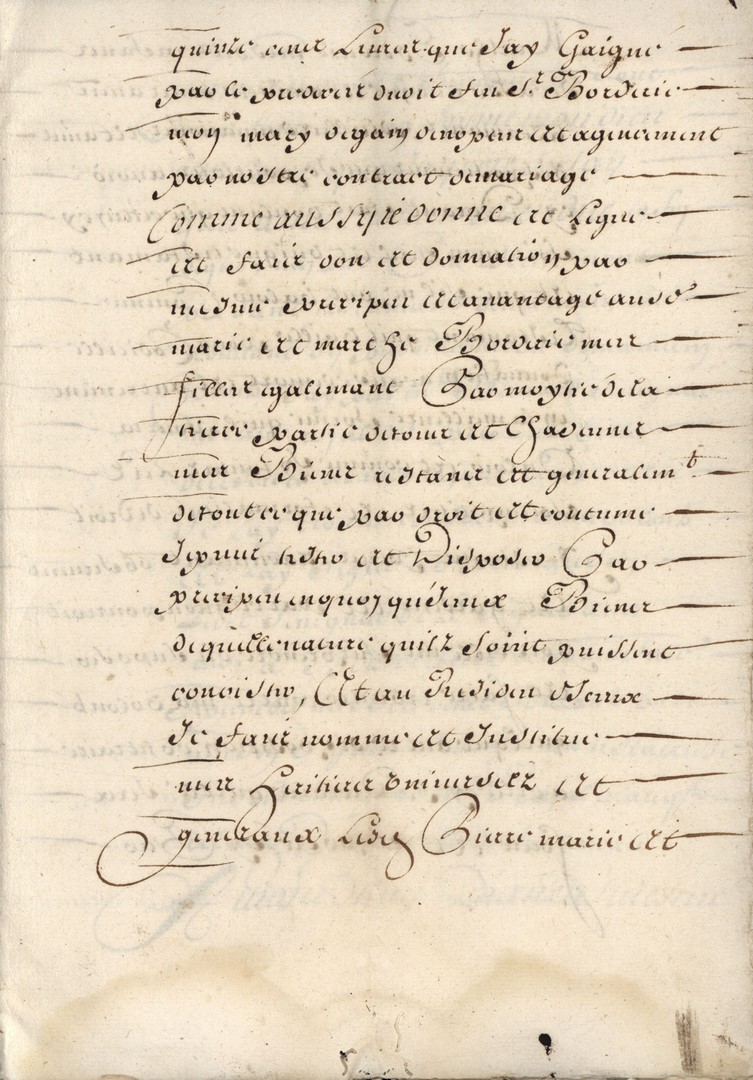 quinze cens Livres que Jay Gaigné
par le predeces dudit feu Sr Borderie
mon mary de gain de nopces et agencement
par nostre contract de mariage
Comme aussy je donne et Legue
et fais don et donnation par
mesme preciput et avantage ausd
marie et marthe Borderie mes
filles egalemant Par moytié de la
tierce partie de tous et Chacuns
mes Biens restants et generalemt
de tout ce que par droit et coutume
Je puis tister et Disposer Par
preciput en quoy que Iceux Biens
de quelle nature quilz soint puissent
concister, Et au Residu d'Iceux
Je fais nomme et Institue
mes Heritiers universelz et
generaux Lesd Pierre marie et